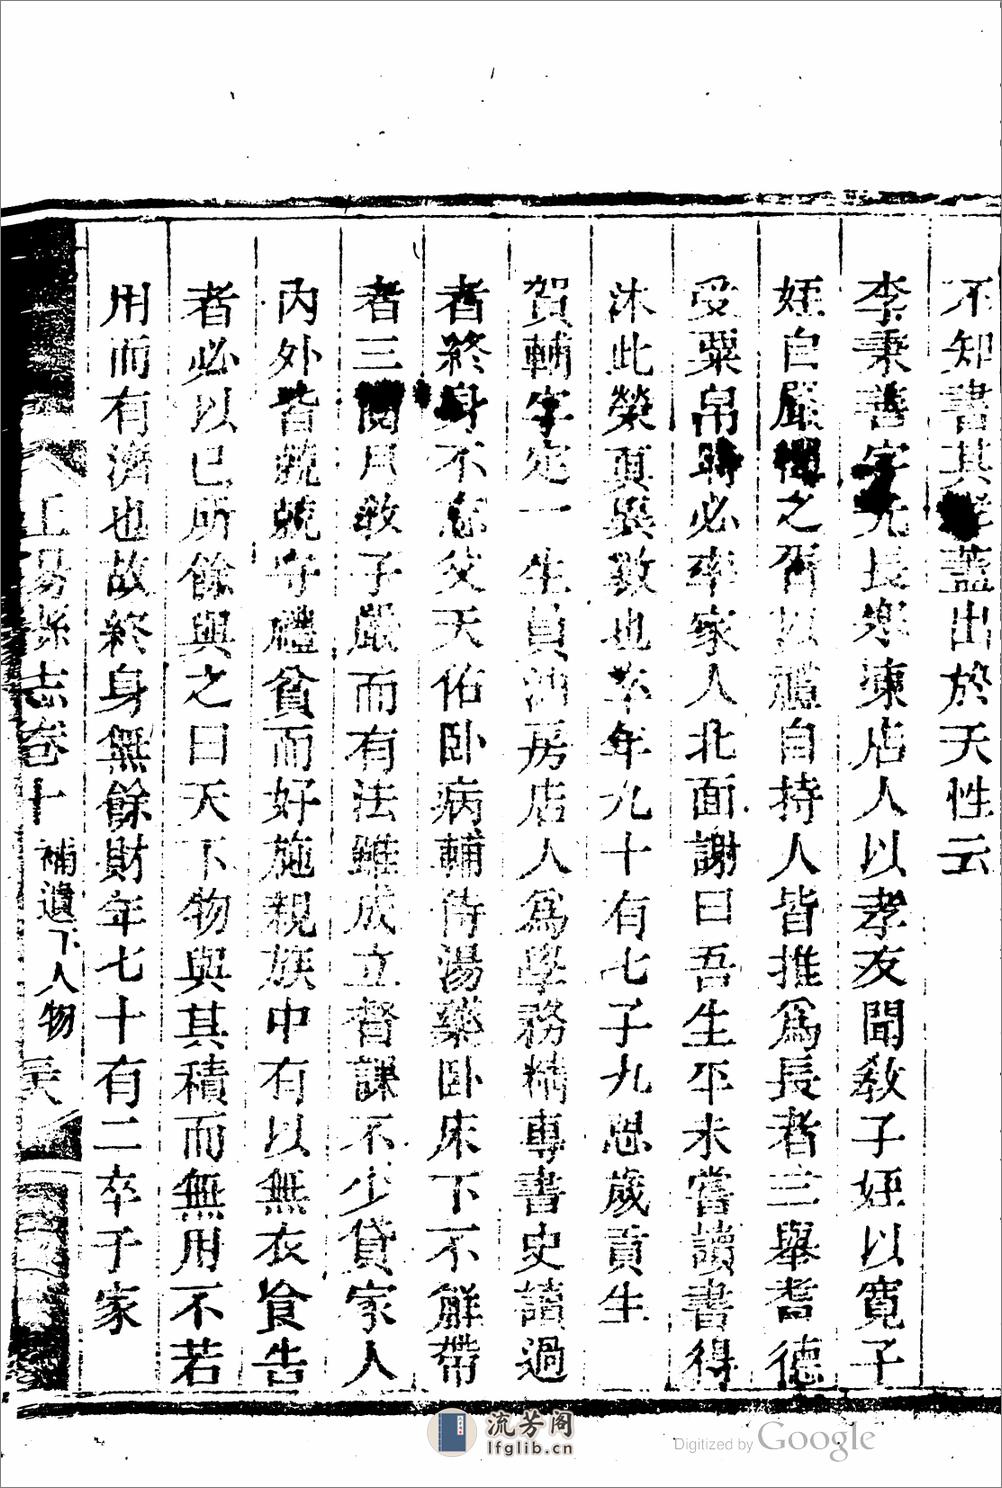 不知書其孝蓋出於天性云
李秉善字元長寒凍店人以孝友聞教子姪以寬子
姪自嚴憚之胥以禮自持人皆推為長者三舉耆德
受粟帛時必率家人北面謝曰吾生平未嘗讀書得
沐此榮頁異數也卒年九十有七子九思歲貢生
賀輔字定一生員油房店人為學務精專書史讀過
者終身不忘父天佑臥病輔侍湯藥臥床下不解帶
者三閱月教子嚴而有法雖成立督課不少貸家人
內外皆兢兢守禮貧而好施親族中有以無衣食告
者必以已所餘與之曰天下物與其積而無用不若
用而有濟也故終身無餘財年七十有二卒子家
縣志卷十 補遺下人物
流芳阁
lfglib.cn
Digitized by Google